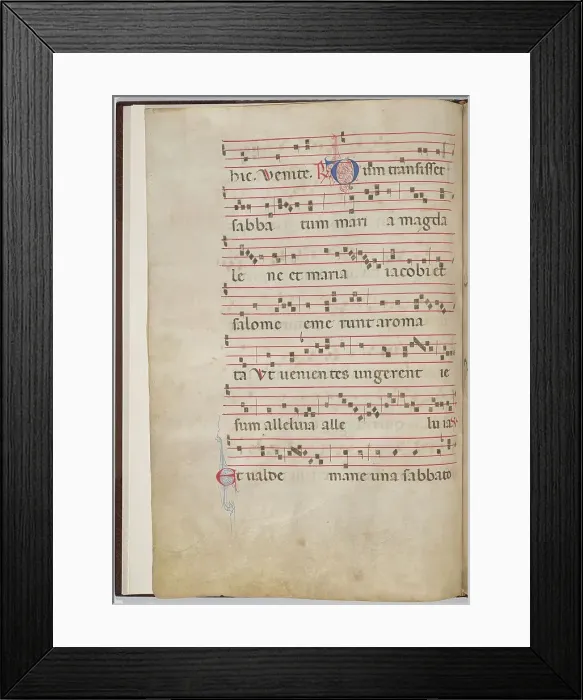 hic. Venite. ℟ Dum transisset
sabba tum mari a magda
le ne et maria iacobi et
salome eme runt aroma
ta Vt uenien tes ungerent ie
sum alleluia alle lu ia ℣
Et ualde mane una sabbato